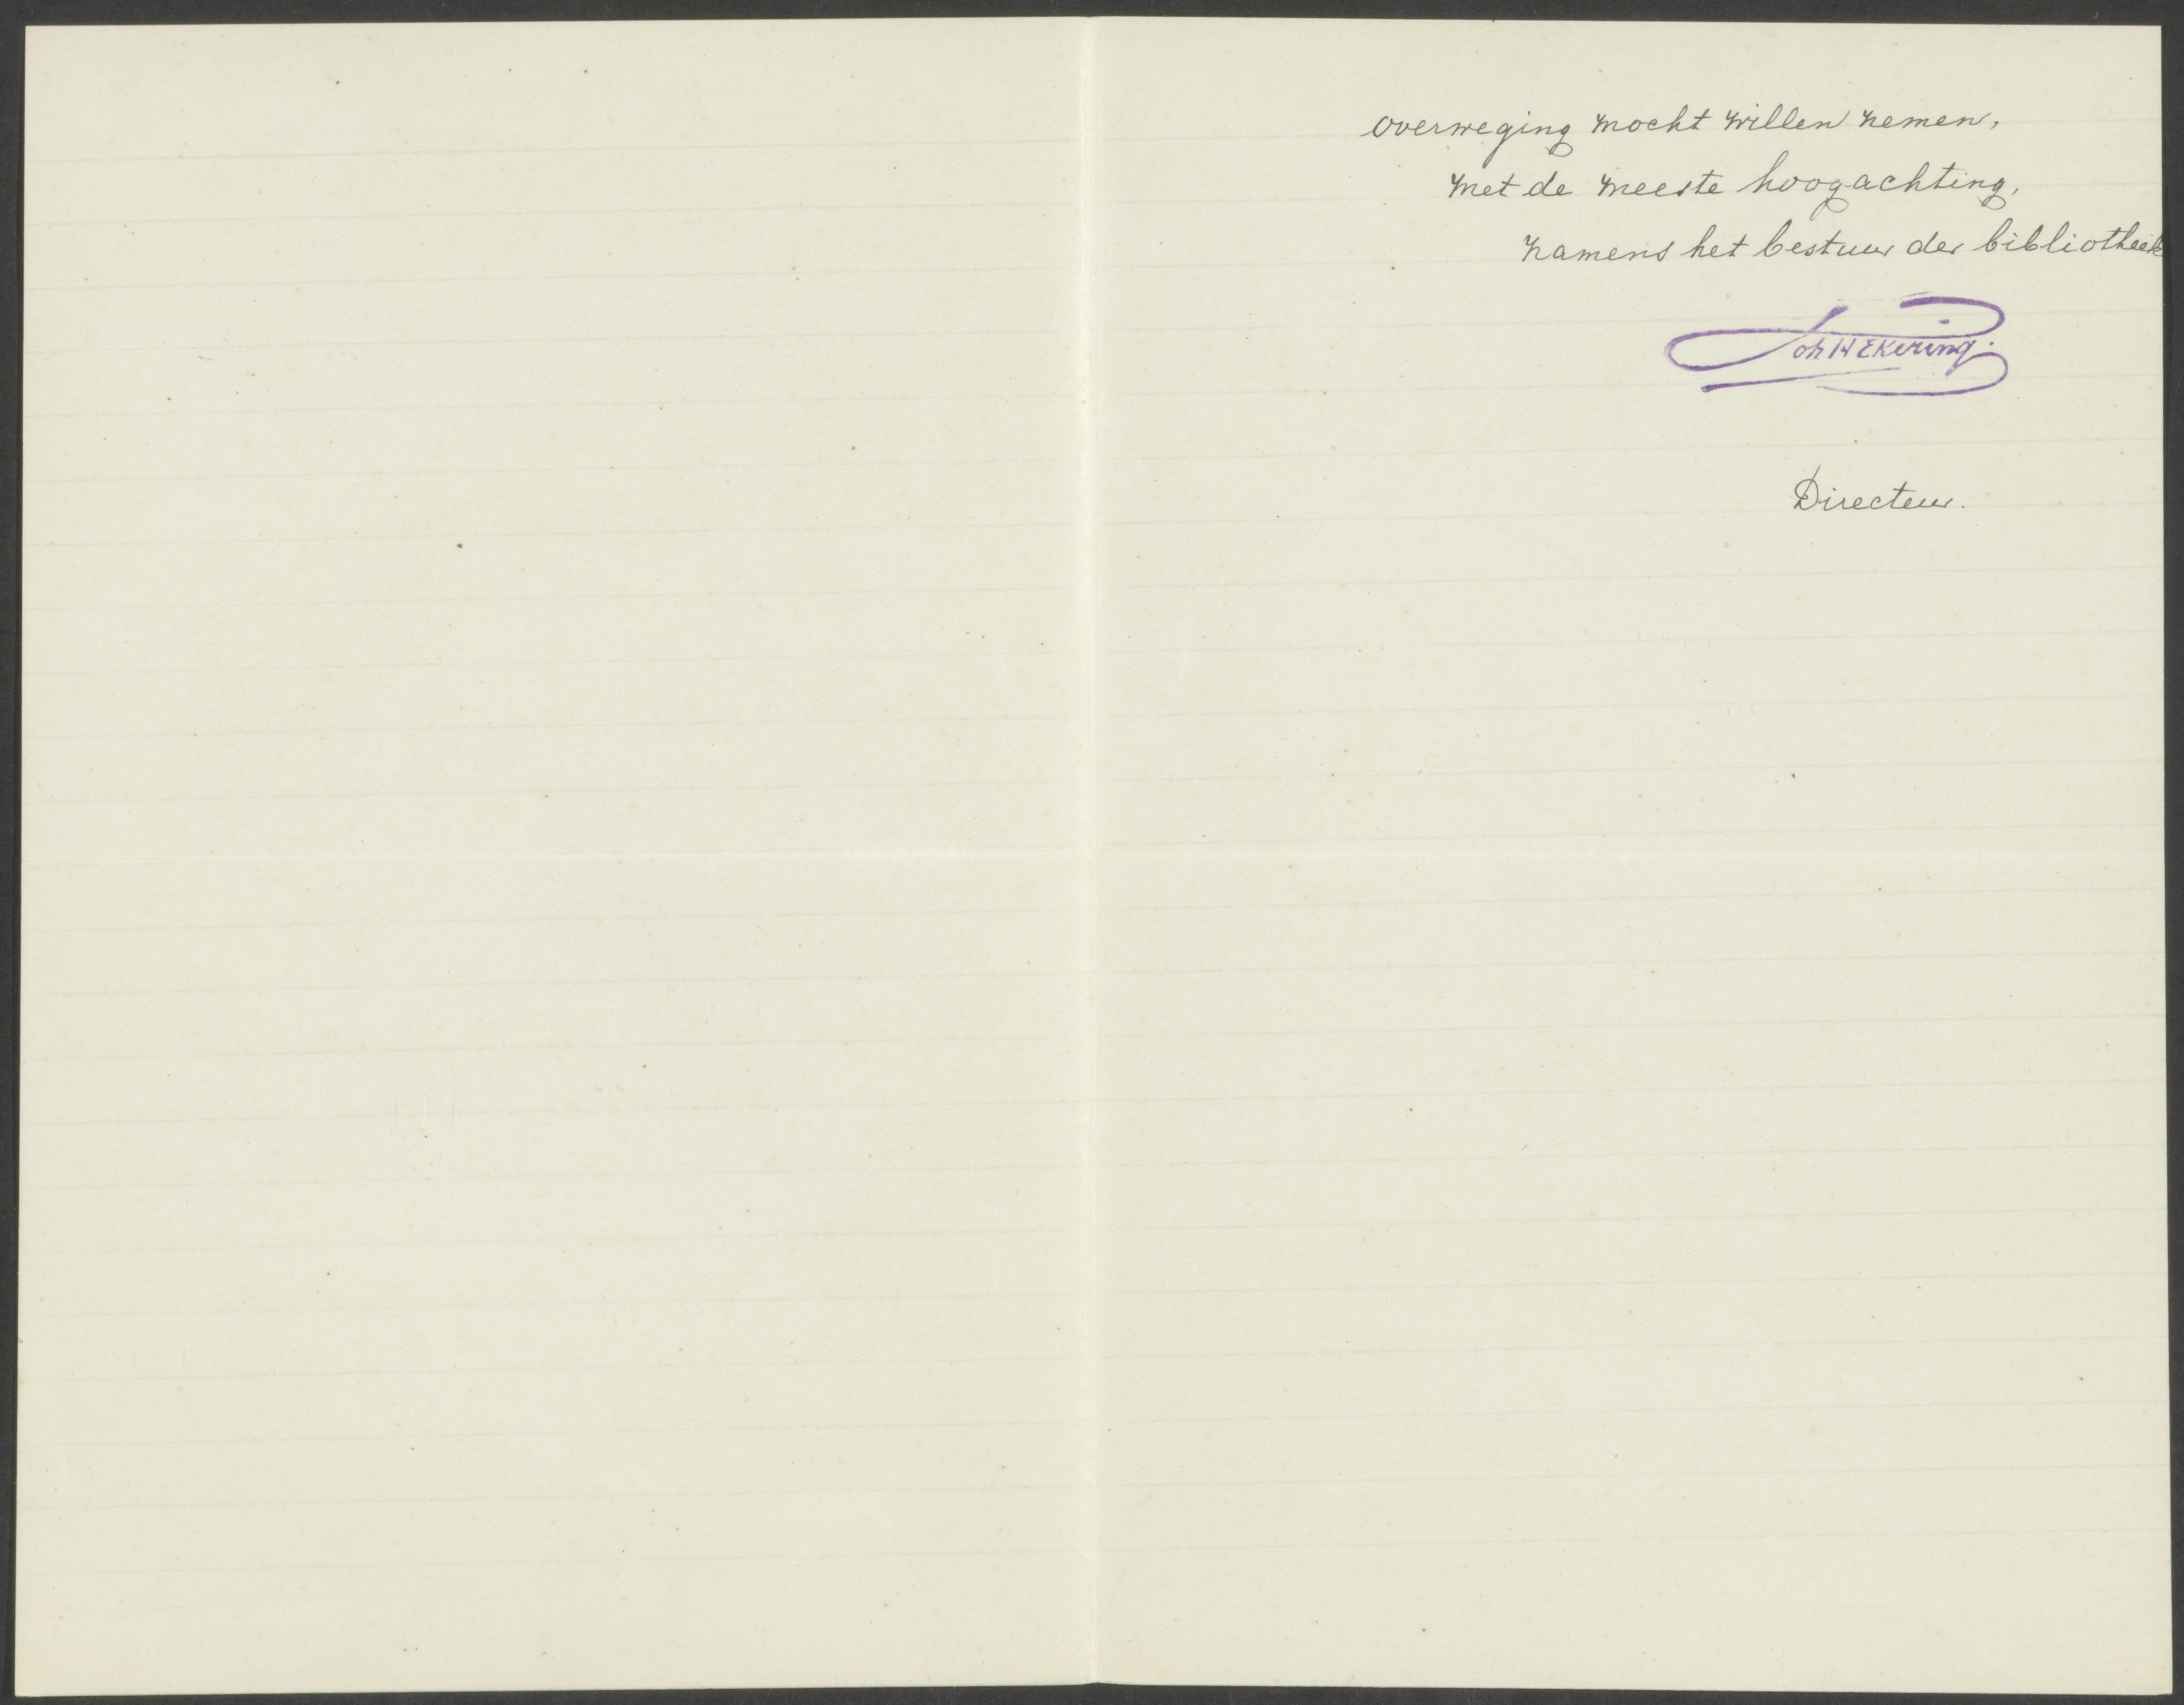 overweging mocht willen nemen,
met de meeste hoogachting,
namens het bestuur der bibliotheek
Joh H Ekering.
Directeur.